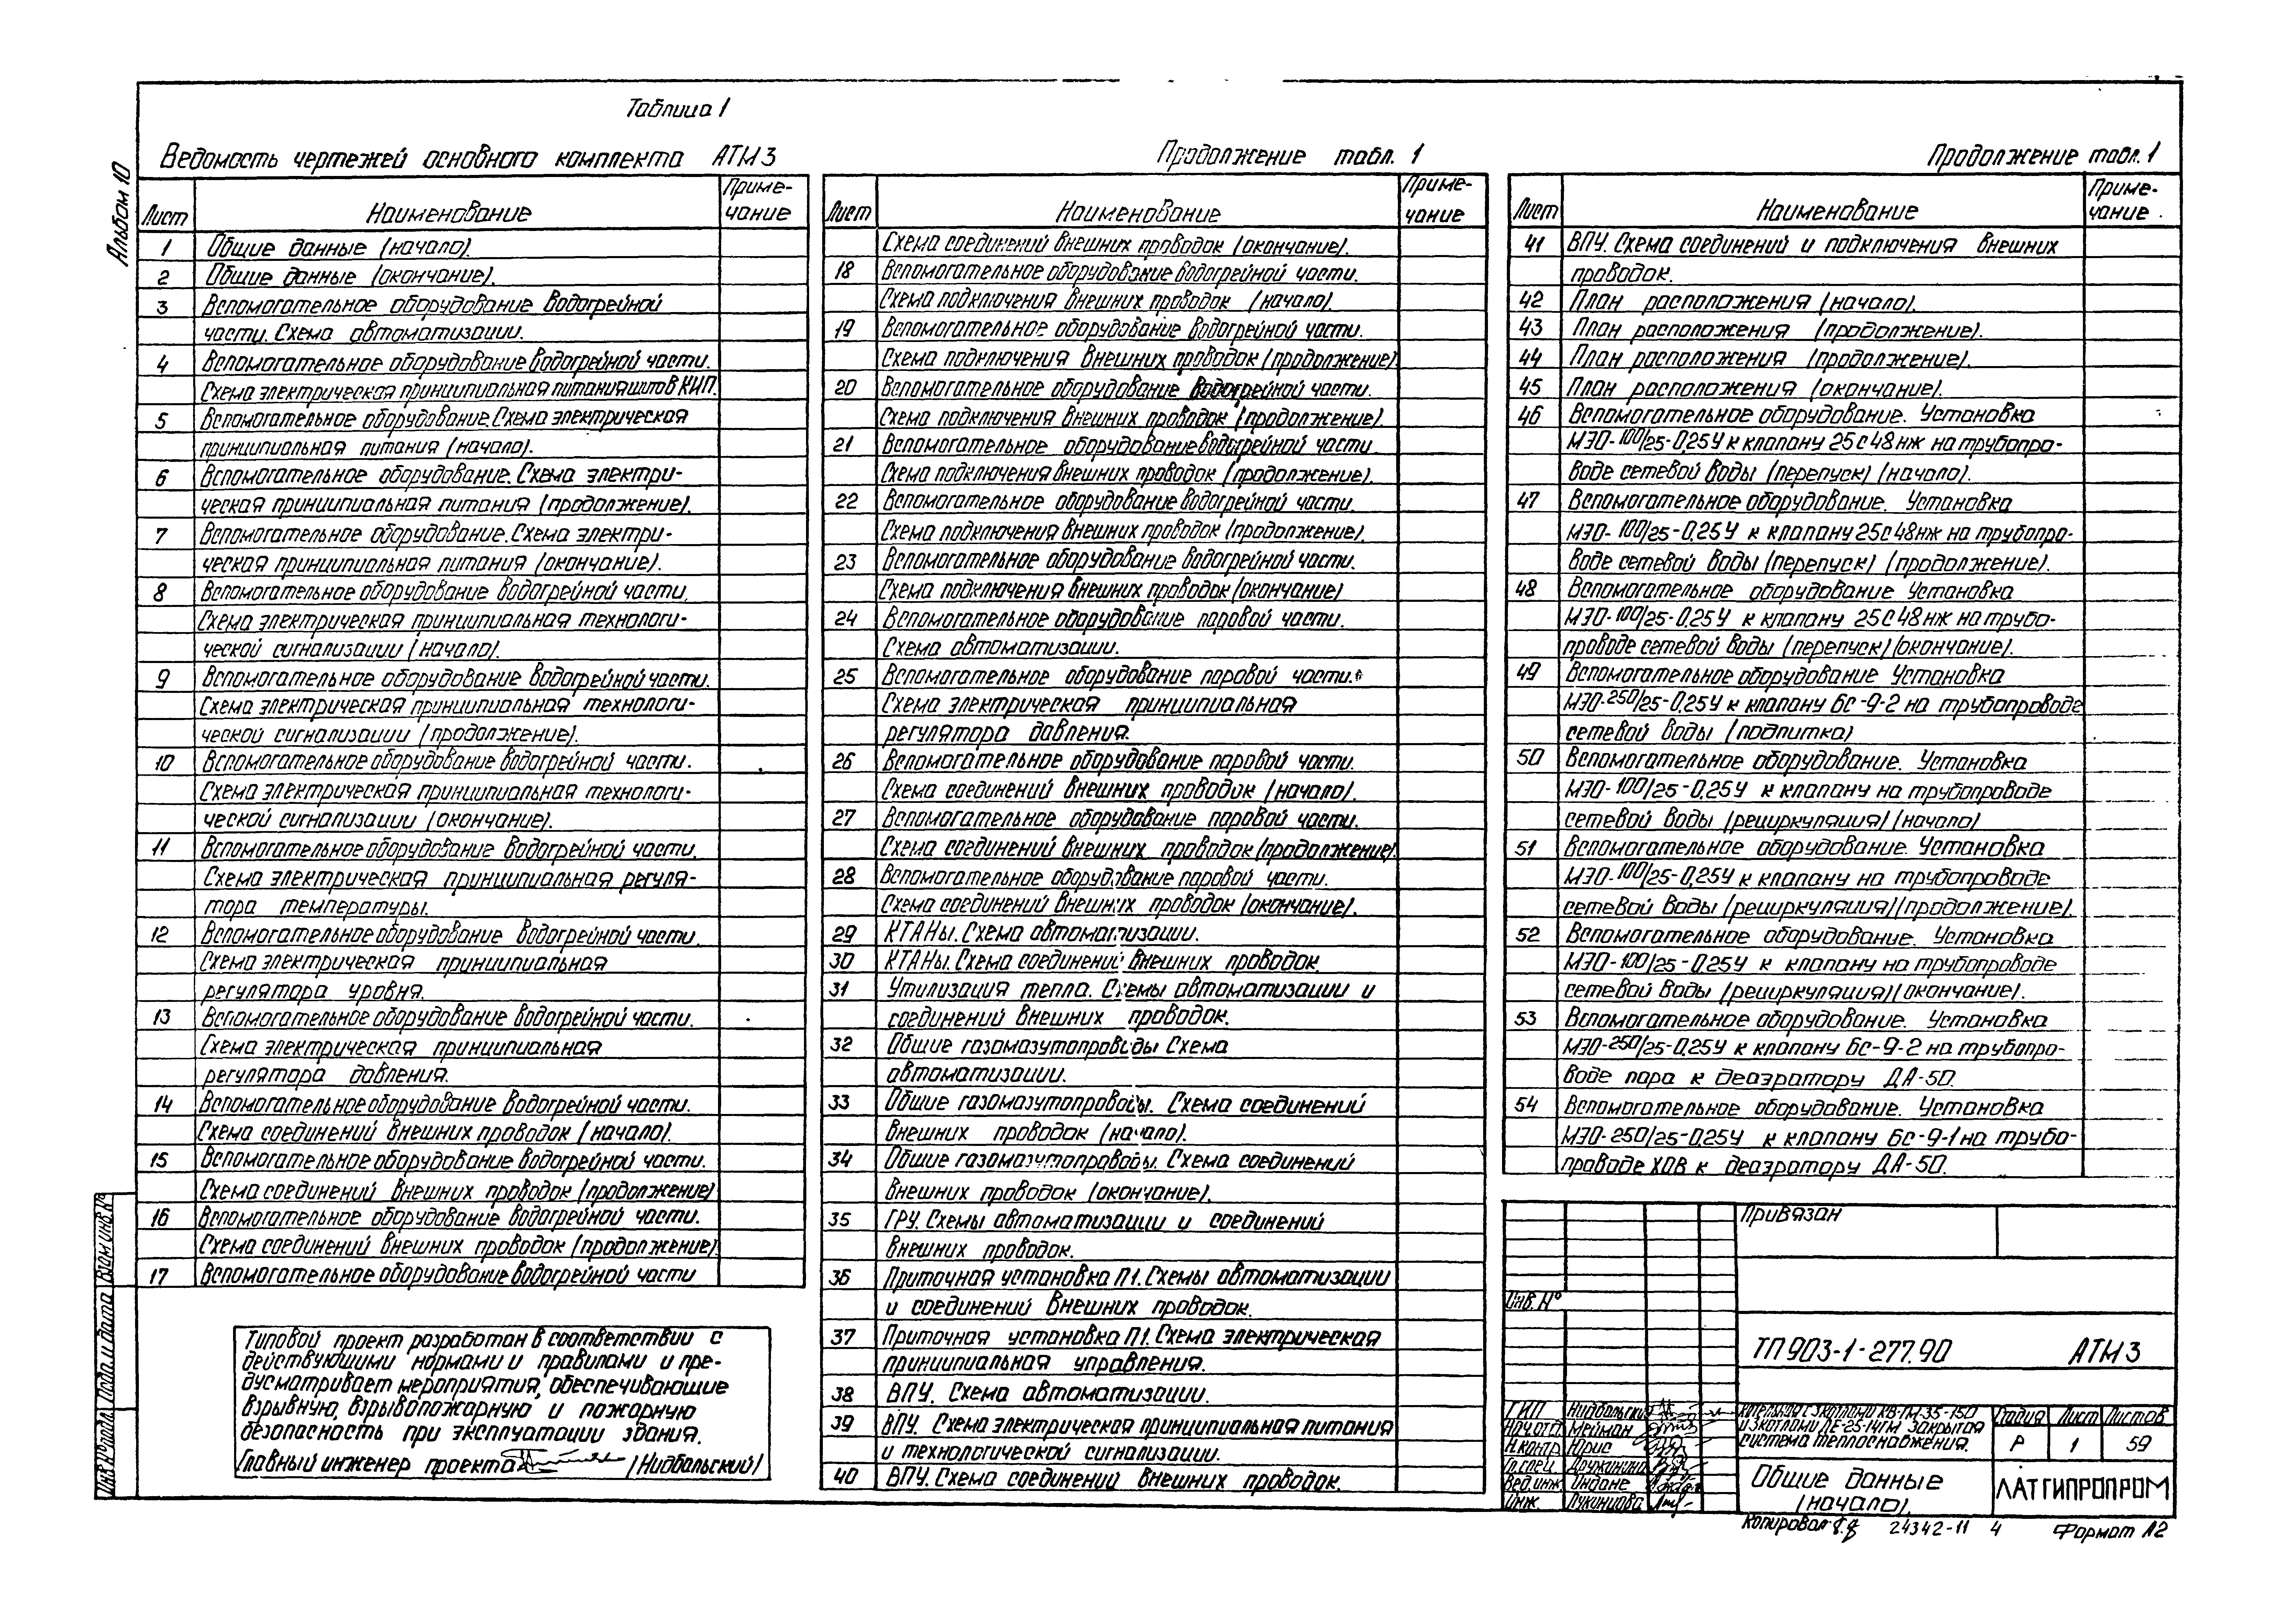 Альбом 10
Таблица 1
Ведомость чертежей основного комплекта АТМ3
Лист Наименование Приме-
чание
1 Общие данные (начало).
2 Общие данные (окончание).
3 Вспомогательное оборудование водогрейной
части. Схема автоматизации.
4 Вспомогательное оборудование водогрейной части.
Схема электрическая принципиальная питания щитов КИП.
5 Вспомогательное оборудование. Схема электрическая
принципиальная питания (начало).
6 Вспомогательное оборудование. Схема электри-
ческая принципиальная питания (продолжение).
7 Вспомогательное оборудование. Схема электри-
ческая принципиальная питания (окончание).
8 Вспомогательное оборудование водогрейной части.
Схема электрическая принципиальная технологи-
ческой сигнализации (начало).
9 Вспомогательное оборудование водогрейной части.
Схема электрическая принципиальная технологи-
ческой сигнализации (продолжение).
10 Вспомогательное оборудование водогрейной части.
Схема электрическая принципиальная технологи-
ческой сигнализации (окончание).
11 Вспомогательное оборудование водогрейной части.
Схема электрическая принципиальная регуля-
тора температуры.
12 Вспомогательное оборудование водогрейной части.
Схема электрическая принципиальная
регулятора уровня.
13 Вспомогательное оборудование водогрейной части.
Схема электрическая принципиальная
регулятора давления.
14 Вспомогательное оборудование водогрейной части.
Схема соединений внешних проводок (начало).
15 Вспомогательное оборудование водогрейной части.
Схема соединений внешних проводок (продолжение)
16 Вспомогательное оборудование водогрейной части.
Схема соединений внешних проводок (продолжение).
17 Вспомогательное оборудование водогрейной части
Типовой проект разработан в соответствии с
действующими нормами и правилами и пре-
дусматривает мероприятия, обеспечивающие
взрывную, взрывопожарную и пожарную
безопасность при эксплуатации здания.
Главный инженер проекта (Нидбальский)
Продолжение табл. 1
Лист Наименование Приме-
чание
Схема соединений внешних проводок (окончание).
18 Вспомогательное оборудование водогрейной части.
Схема подключения внешних проводок (начало).
19 Вспомогательное оборудование водогрейной части.
Схема подключения внешних проводок (продолжение)
20 Вспомогательное оборудование водогрейной части.
Схема подключения внешних проводок (продолжение).
21 Вспомогательное оборудование водогрейной части
Схема подключения внешних проводок (продолжение).
22 Вспомогательное оборудование водогрейной части.
Схема подключения внешних проводок (продолжение).
23 Вспомогательное оборудование водогрейной части.
Схема подключения внешних проводок (окончание)
24 Вспомогательное оборудование паровой части.
Схема автоматизации.
25 Вспомогательное оборудование паровой части.
Схема электрическая принципиальная
регулятора давления.
26 Вспомогательное оборудование паровой части.
Схема соединений внешних проводок (начало).
27 Вспомогательное оборудование паровой части.
Схема соединений внешних проводок (продолжение).
28 Вспомогательное оборудование паровой части.
Схема соединений внешних проводок (окончание).
29 КТАНы. Схема автоматизации.
30 КТАНы. Схема соединений внешних проводок.
31 Утилизация тепла. Схемы автоматизации и
соединений внешних проводок.
32 Общие газомазутопроводы Схема
автоматизации.
33 Общие газомазутопроводы. Схема соединений
внешних проводок (начало).
34 Общие газомазутопроводы. Схема соединений
внешних проводок (окончание).
35 ГРУ. Схемы автоматизации и соединений
внешних проводок.
36 Приточная установка П1. Схемы автоматизации
и соединений внешних проводок.
37 Приточная установка П1. Схема электрическая
принципиальная управления.
38 ВПУ. Схема автоматизации.
39 ВПУ. Схема электрическая принципиальная питания
и технологической сигнализации.
40 ВПУ. Схема соединений внешних проводок.
Продолжение табл. 1
Лист Наименование Приме-
чание
41 ВПУ. Схема соединений и подключения внешних
проводок.
42 План расположения (начало).
43 План расположения (продолжение).
44 План расположения (продолжение).
45 План расположения (окончание).
46 Вспомогательное оборудование. Установка
МЭО-100/25-0,25У к клапану 25с48нж на трубопро-
воде сетевой воды (перепуск) (начало).
47 Вспомогательное оборудование. Установка
МЭО-100/25-0,25У к клапану 25с48нж на трубопро-
воде сетевой воды (перепуск) (продолжение).
48 Вспомогательное оборудование Установка
МЭО-100/25-0,25У к клапану 25с48нж на трубо-
проводе сетевой воды (перепуск) (окончание).
49 Вспомогательное оборудование Установка
МЭО-250/25-0,25У к клапану 6с-9-2 на трубопроводе
сетевой воды (подпитка)
50 Вспомогательное оборудование. Установка
МЭО-100/25-0,25У к клапану на трубопроводе
сетевой воды (рециркуляция) (начало)
51 Вспомогательное оборудование. Установка
МЭО-100/25-0,25У к клапану на трубопроводе
сетевой воды (рециркуляция) (продолжение).
52 Вспомогательное оборудование. Установка
МЭО-100/25-0,25У к клапану на трубопроводе
сетевой воды (рециркуляция) (окончание).
53 Вспомогательное оборудование. Установка
МЭО-250/25-0,25У к клапану 6с-9-2 на трубопро-
воде пара к деаэратору ДА-50.
54 Вспомогательное оборудование. Установка
МЭО-250/25-0,25У к клапану 6с-9-1 на трубо-
проводе ХОВ к деаэратору ДА-50.
Привязан
Инв. №
ТП 903-1-277.90 АТМ3
ГИП Нидбальский
Нач.отд. Мейман
Н.контр. Юрис
Гл.спец. Дружинина
Вед.инж. Индане
Инж. Лукашова
Котельная с 3 котлами КВ-ГМ-35-150
и 3 котлами ДЕ-25-14ГМ Закрытая
система теплоснабжения.
Стадия Лист Листов
Р 1 59
Общие данные
(начало).
ЛАТГИПРОПРОМ
Копировал 24342-11 4 Формат А2
Инв.№ подл. Подп. и дата Взам.инв.№